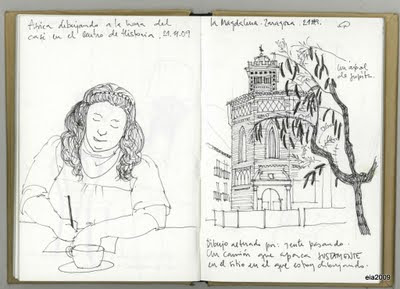 Mónica dibujando a la hora del
café en el Centro de Historia, 21.4.09
La Magdalena. Zaragoza. 21.4.09.
Un árbol
de Jupiter
Dibujo actuado por: gente pasando.
Un camión que aparca JUSTAMENTE
en el sitio en el que estoy dibujando.
eia2009